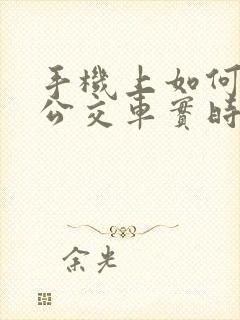 手機上如何
公交車實時
余光